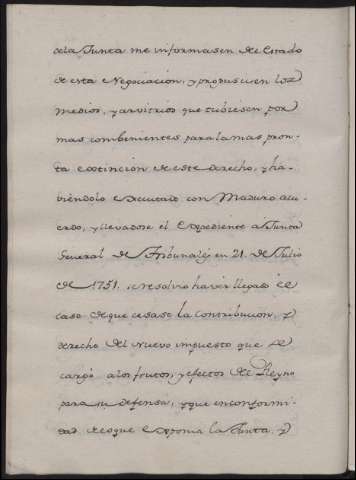 dela Junta me informasen del estado
de esta Negociacion, y propusiesen los
medios, y arvitrios que tubiesen por
mas combenientes para la mas pron-
ta extincion de este derecho, y ha-
biendolo executado con Maduro acu-
erdo, y llevadose el Expediente a Junta
General de Tribunales en 21. de Julio
de 1751. se resolvió haver llegado el
caso de que cesase la Contribucion, y
derecho del Nuevo impuesto que se
cargó alos frutos, y efectos del Reyno
para su defensa, y que en conformi-
dad de loque exponia la Junta, y